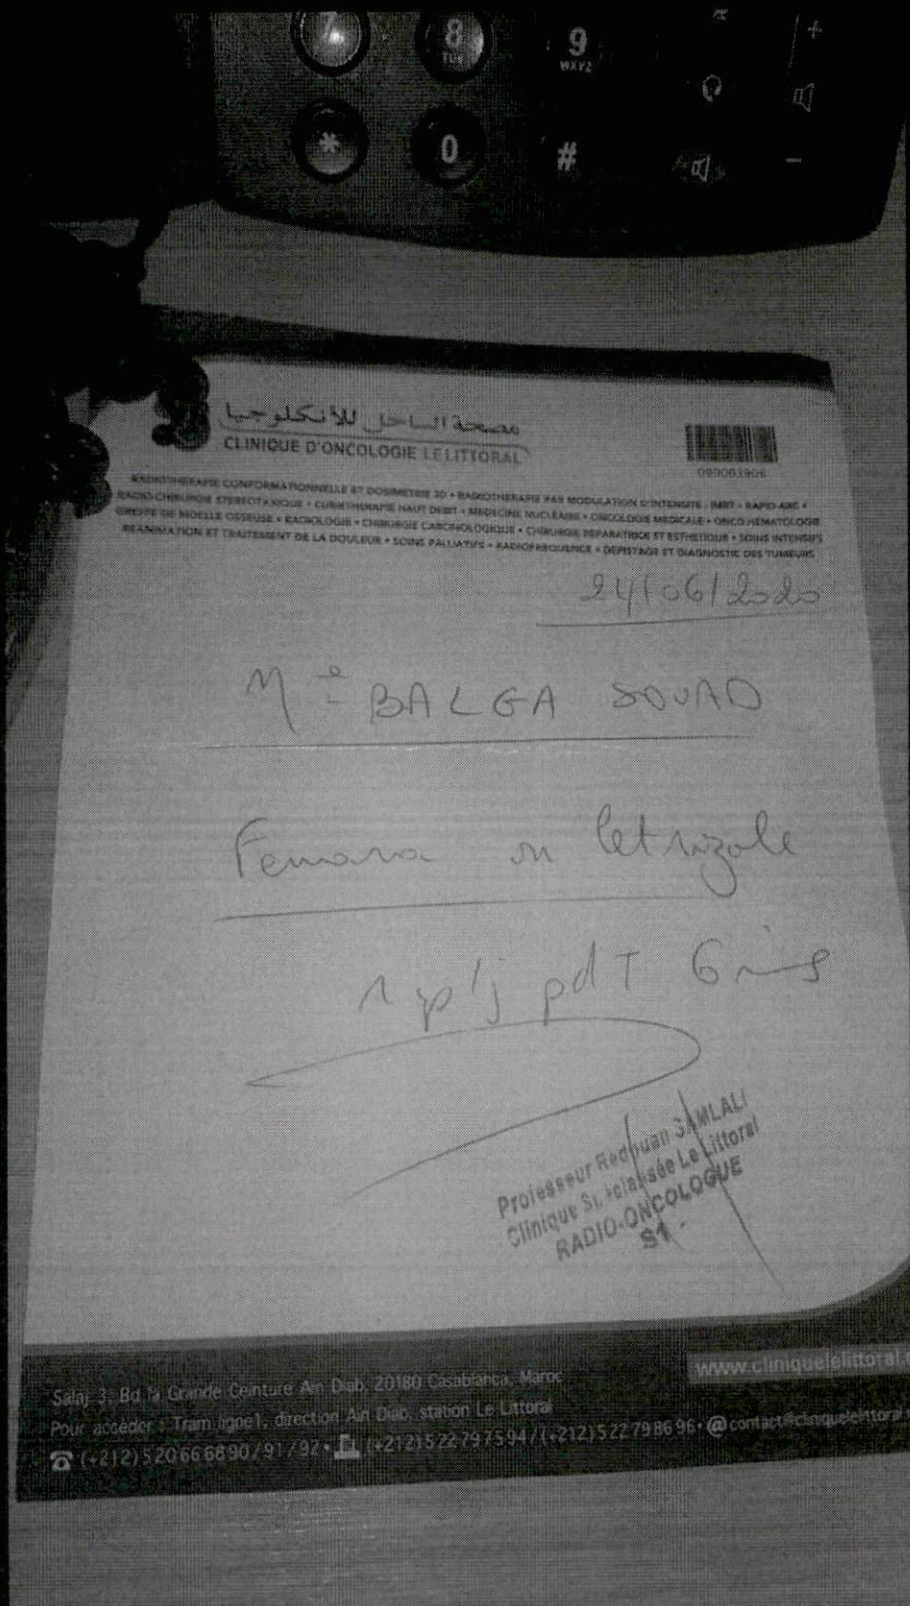 7 8 9
TUV WXYZ
+
* 0 # -
مصحة الساحل للأنكلوجيا
CLINIQUE D'ONCOLOGIE LE LITTORAL
090003906
RADIOTHERAPIE CONFORMATIONNELLE ET DOSIMETRIE 3D • RADIOTHERAPIE PAR MODULATION D'INTENSITE : IMRT - RAPID-ARC •
RADIO-CHIRURGIE STEREOTAXIQUE • CURIETHERAPIE HAUT DEBIT • MEDECINE NUCLEAIRE • ONCOLOGIE MEDICALE • ONCO HEMATOLOGIE
GREFFE DE MOELLE OSSEUSE • RADIOLOGIE • CHIRURGIE CARCINOLOGIQUE • CHIRURGIE REPARATRICE ET ESTHETIQUE • SOINS INTENSIFS
REANIMATION ET TRAITEMENT DE LA DOULEUR • SOINS PALLIATIFS • RADIOFREQUENCE • DEPISTAGE ET DIAGNOSTIC DES TUMEURS
24/06/2020
Me BALGA SOUAD
Femara ou letrozole
1 cp/j pdt 6 mois
Professeur Redouan SAMLALI
Clinique Spécialisée Le Littoral
RADIO-ONCOLOGUE
S1
www.cliniquelelittoral.
Salaj 3, Bd la Grande Ceinture Ain Diab, 20180 Casablanca, Maroc
Pour accéder : Tram ligne1, direction Ain Diab, station Le Littoral
(+212)520666890/91/92 • (+212)522797594/(+212)522798696 • @contact@cliniquelelittoral.